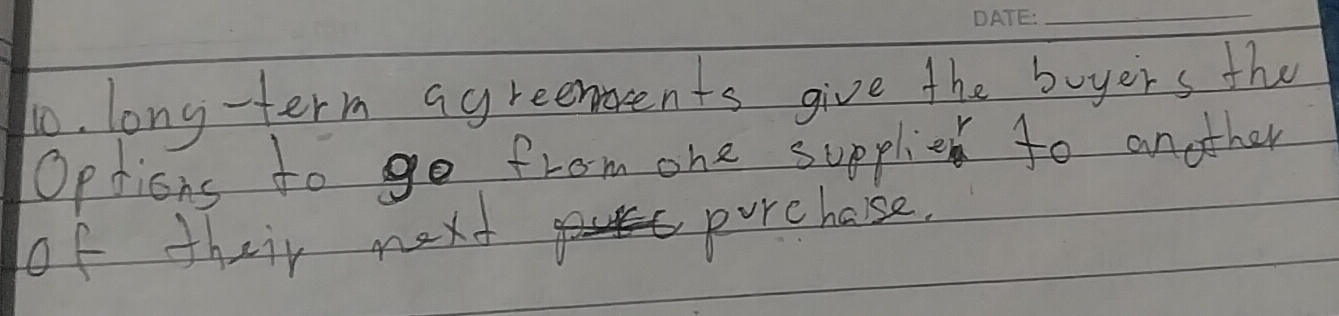 DATE:
10. long-term agreements give the buyers the
Options to go from one supplier to another
of their next purchase.